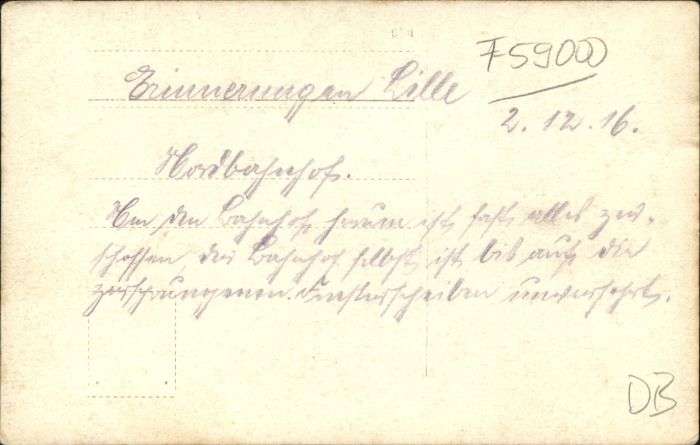 F 59000
Erinnerungen Lille
2. 12. 16.
Nordbahnhof.
Um den Bahnhof herum ist fast alles zer-
schossen, der Bahnhof selbst ist bis auf die
zersprungenen Fensterscheiben unversehrt.
DB